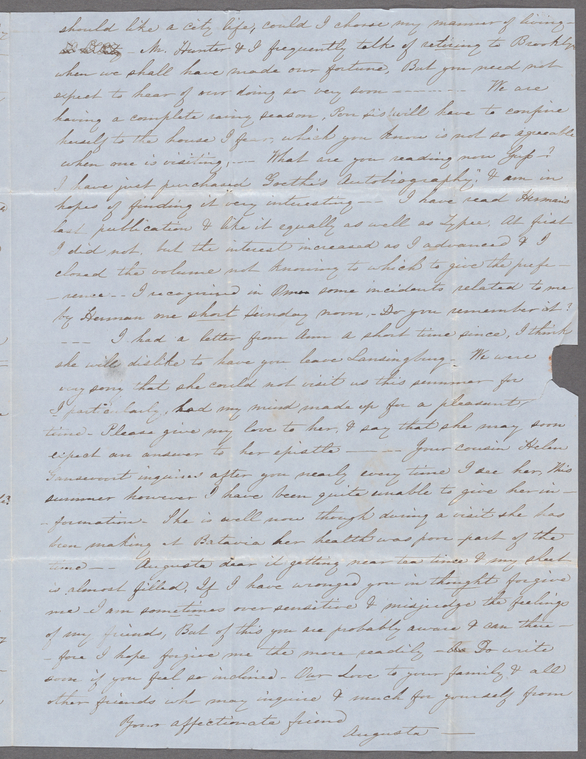 should like a city life, could I choose my manner of living -
- Mr. Hunter & I frequently talk of retiring to Brooklyn
when we shall have made our fortune, But you need not
expect to hear of our doing so very soon - - - - - - - We are
having a complete rainy season, Poor sis will have to confine
herself to the house I fear, which you know is not so agreeable
when one is visiting, - - What are you reading now Gus?
I have just purchased "Goethe's Autobiography" & am in
hopes of finding it very interesting - - I have read Herman's
last publication & like it equally as well as Typee. At first
I did not, but the interest increased as I advanced & I
closed the volume not knowing to which to give the prefe-
-rence - - I recognized in Omoo some incidents related to me
by Herman one short Sunday morn, - Do you remember it?
- - - I had a letter from Ann a short time since, I think
she will dislike to have you leave Lansingburg. We were
very sorry that she could not visit us this summer for
I particularly, had my mind made up for a pleasant
time - Please give my love to her, & say that she may soon
expect an answer to her epistle - - - Your cousin Helen
Gansevoort inquires after you nearly every time I see her, this
summer however I have been quite unable to give her in-
-formation. She is well now though during a visit she has
been making at Batavia her health was poor part of the
time - - Augusta dear it getting near tea time & my sheet
is almost filled, If I have wronged you in thought forgive
me I am sometimes over sensitive & misjudge the feelings
of my friends, But of this you are probably aware & can there-
-fore I hope forgive me the more readily - Do write
soon if you feel so inclined - Our love to your family & all
other friends who may inquire & much for yourself from
Your affectionate friend
Augusta -